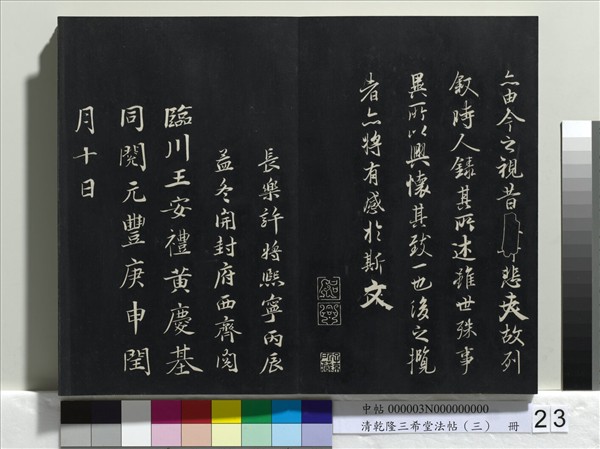 亦由今之視昔悲夫故列
叙時人錄其所述雖世殊事
異所以興懷其致一也後之攬
者亦將有感於斯文
長樂許將熙寧丙辰
孟冬開封府西齋閱
臨川王安禮黃慶基
同閱元豐庚申閏
月十日
中帖 000003N000000000
清乾隆三希堂法帖（三） 冊
23